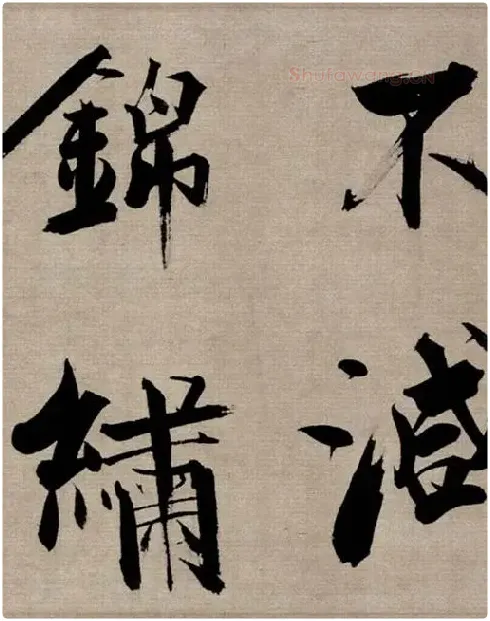 不減
錦繡
Shufawang.CN